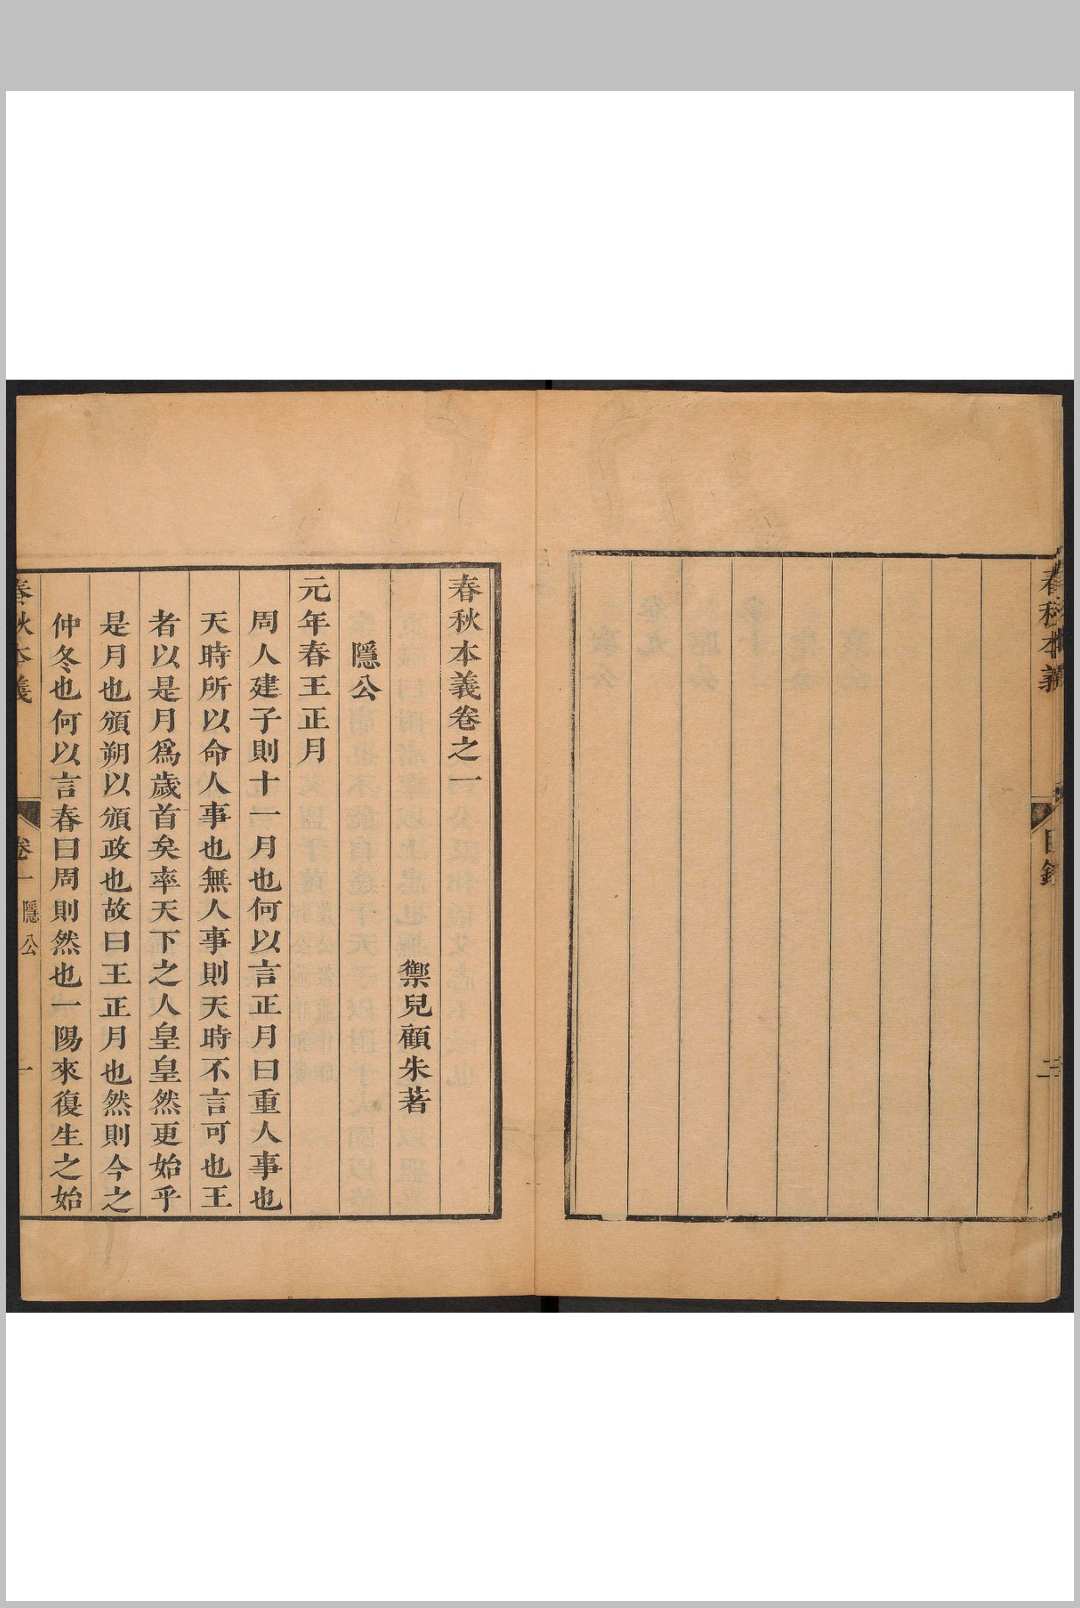 春秋本義
目錄
二
春秋本義卷之一
禦兒顧朱著
隱公
元年春王正月
周人建子則十一月也何以言正月曰重人事也
天時所以命人事也無人事則天時不言可也王
者以是月爲歲首矣率天下之人皇皇然更始乎
是月也頒朔以頒政也故曰王正月也然則今之
仲冬也何以言春曰周則然也一陽來復生之始
春秋本義
卷一
隱公
一